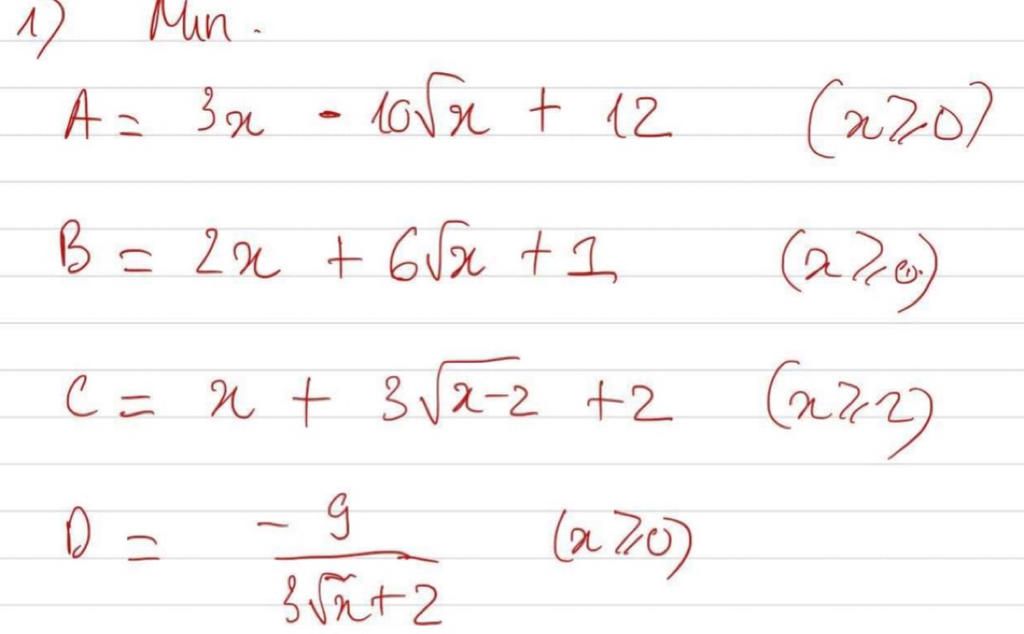 1) Min.
A = 3x - 10√x + 12 (x ⩾ 0)
B = 2x + 6√x + 1 (x ⩾ 0)
C = x + 3√(x-2) + 2 (x ⩾ 2)
D = -9/(3√x + 2) (x ⩾ 0)